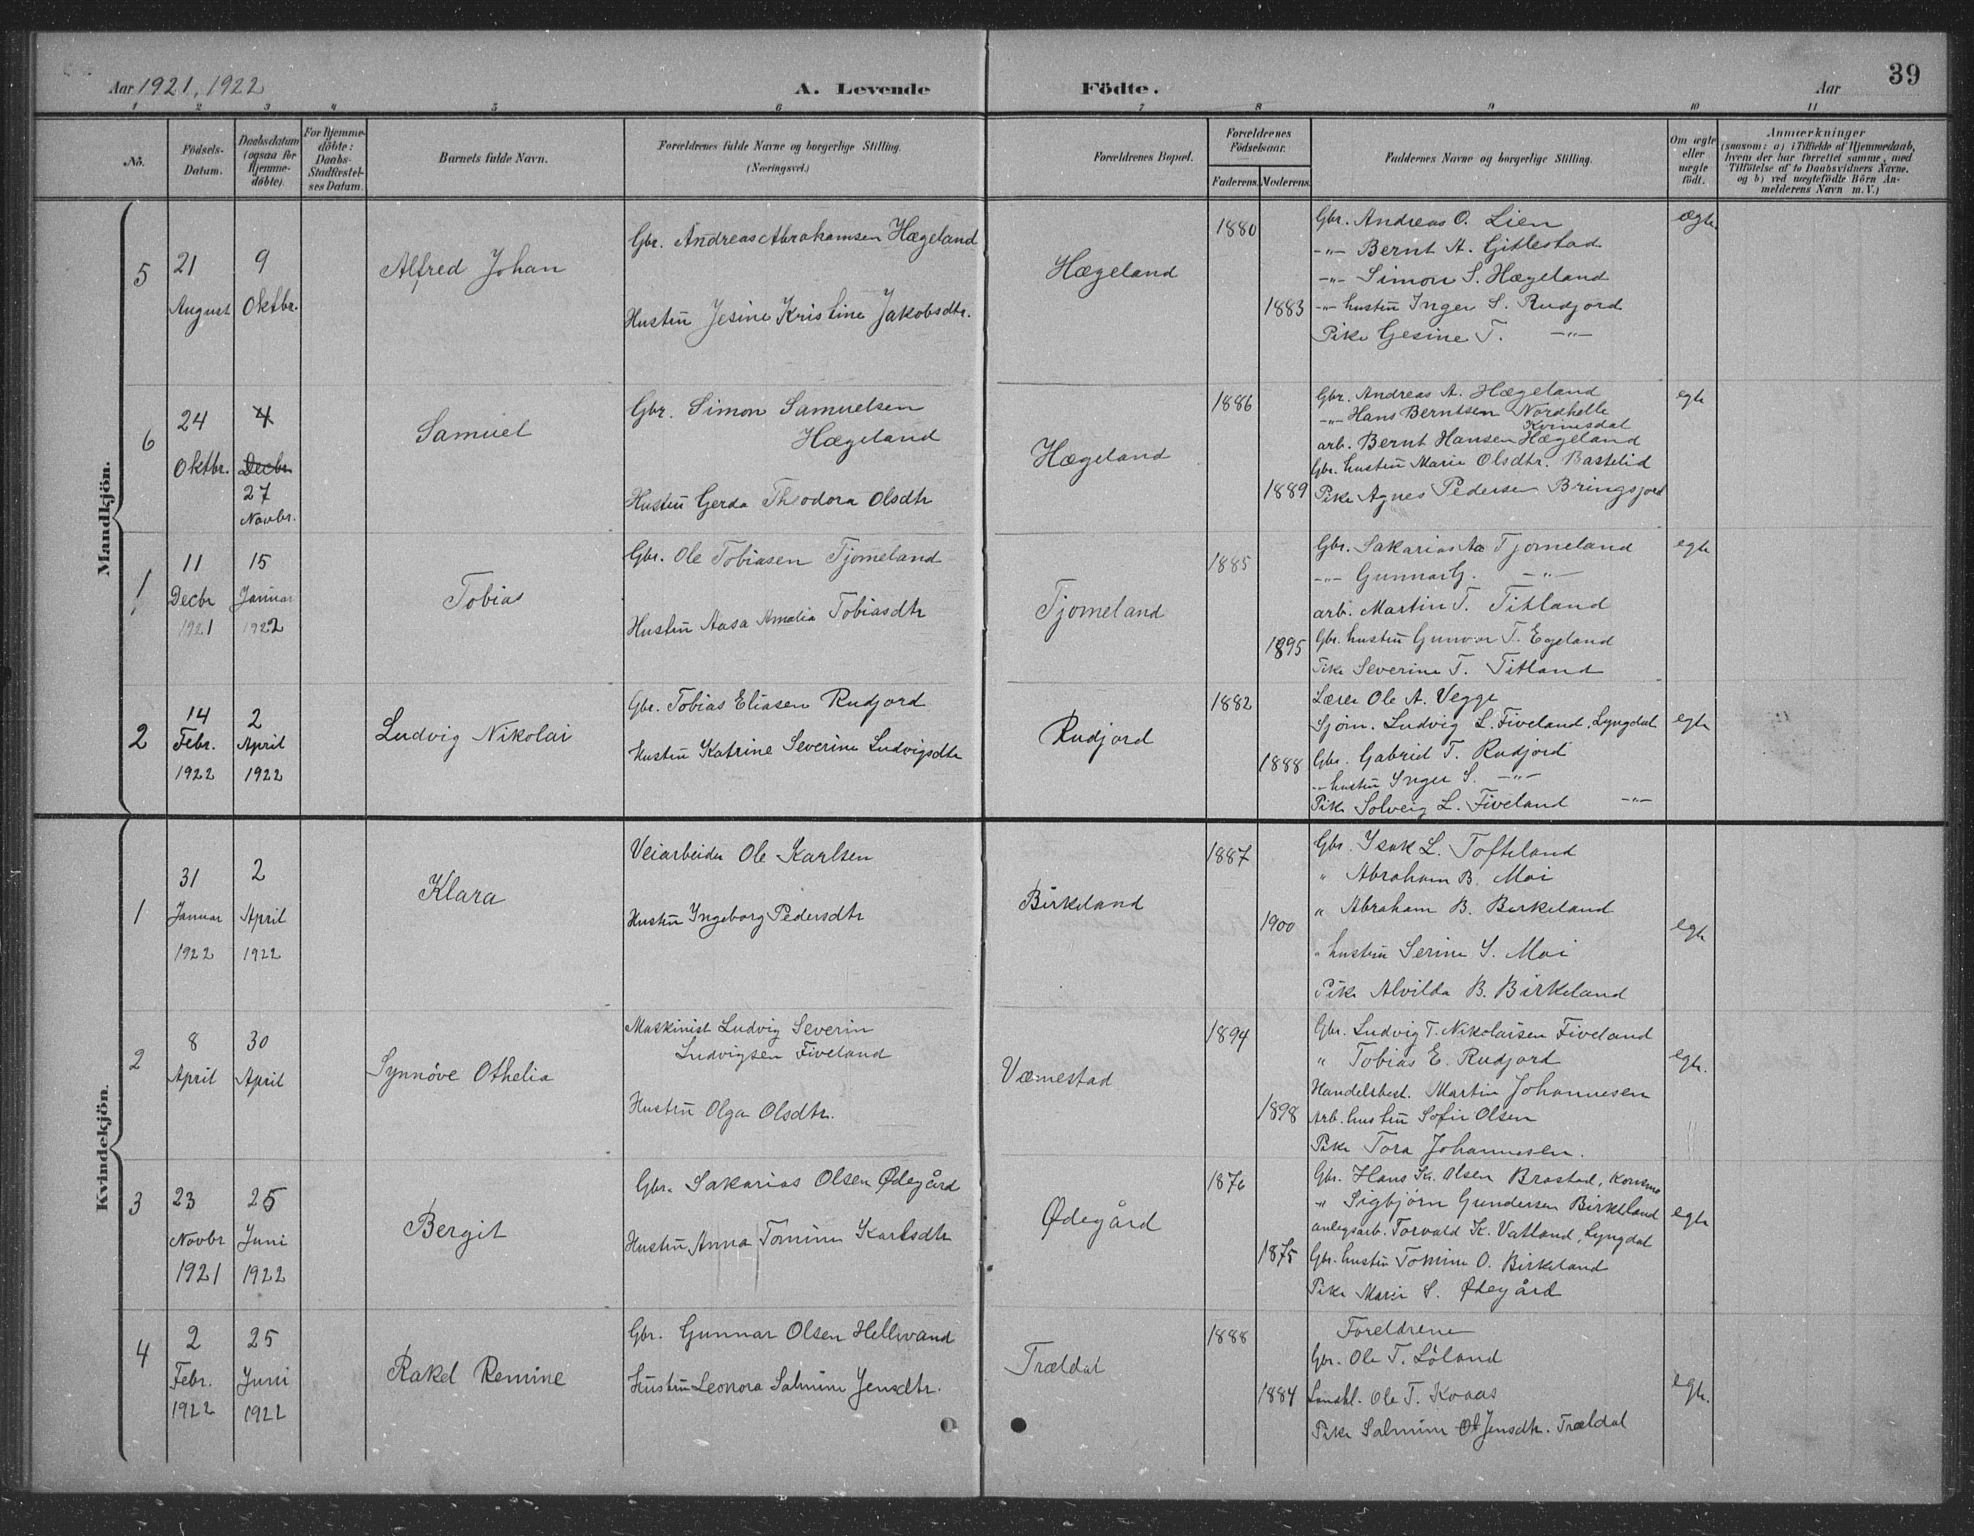 Aar 1921, 1922 A. Levende Födte. Aar 39
1 2 3 4 5 6 7 8 9 10 11
No. Födsels-Datum. Daabsdatum (ogsaa for Hjemme-döbte). For Hjemme-döbte: Daabs-Stadfæstel-ses Datum. Barnets fulde Navn. Forældrenes fulde Navne og borgerlige Stilling. (Næringsvei.) Forældrenes Bopæl. Forældrenes Födselsaar. Faderens. Moderens. Faddernes Navne og borgerlige Stilling. Om ægte eller uægte födt. Anmærkninger (saasom: a) i Tilfælde af Hjemmedaab, hvem der har forrettet samme, med Tilföielse af to Daabsvidners Navne. og b) ved uægtefödte Börn An-melderens Navn m. V.)
Mandkjön.
5 21 August 9 Oktbr. Alfred Johan
Gbr. Andreas Abrahamsen Hægeland
Hustru Jesine Kristine Jakobsdtr.
Hægeland 1880 1883
Gbr. Andreas O. Lien ægte
-"- Bernt A. Gitlestad
-"- Simon S. Hægeland
-"- hustru Inger S. Rudjord
Pike Gesine T. -"-
6 24 Oktbr. 4 Decbr 27 Novbr. Samuel
Gbr. Simon Samuelsen
Hægeland
Hustru Gerda Theodora Olsdtr
Hægeland 1886 1889
Gbr. Andreas A. Hægeland egte
-"- Hans Berntsen Nordhelle
Kvinesdal
arb. Bernt Hansen Hægeland
Gbr. hustru Marie Olsdtr. Bastelid
Pike Agnes Pedersen Bringsjord
1 11 Decbr 1921 15 Januar 1922 Tobias
Gbr. Ole Tobiasen Tjomeland
Hustru Aasa Amalia Tobiasdtr
Tjomeland 1885 1895
Gbr. Sakarias Aa Tjomeland egte
-"- Gunnar G. -"-
arb. Martin T. Titland
Gbr. hustru Gunvor T. Egeland
Pike Severine T. Titland
2 14 Febr. 1922 2 April 1922 Ludvig Nikolai
Gbr. Tobias Eliasen Rudjord
Hustru Katrine Severine Ludvigsdtr
Rudjord 1882 1888
Lærer Ole A. Vegge
Sjöm. Ludvig L. Fiveland, Lyngdal egte
Gbr. Gabriel T. Rudjord
-"- hustru Inger S. -"-
Pike Solveig L. Fiveland -"-
Kvindekjön.
1 31 Januar 1922 2 April 1922 Klara
Veiarbeider Ole Karlsen
Hustru Ingeborg Pedersdtr
Birkeland 1887 1900
Gbr. Isak L. Tofteland
" Abraham B. Moi
" Abraham B. Birkeland
egte
" hustru Serine S. Moi
Pike Alvilda B. Birkeland
2 8 April 30 April Synnöve Othelia
Maskinist Ludvig Severin
Ludvigsen Fiveland
Hustru Olga Olsdtr.
Væmestad 1894 1898
Gbr. Ludvig T. Nikolaisen Fiveland
" Tobias E. Rudjord egte.
Handelsbest. Martin Johannesen
Arb. hustru Sofie Olsen
Pike Tora Johannesen.
3 23 Novbr 1921 25 Juni 1922 Bergit
Gbr. Sakarias Olsen Ødegård
Hustru Anna Tomine Karlsdtr
Ødegård 1876 1875
Gbr. Hans Kr. Olsen Brastad, Konsmo
" Sigbjørn Gundersen Birkeland egte
anlegsarb. Torvald K. Vatland, Lyngdal
Gbr. hustru Tomine O. Birkeland
Pike Marie S. Ødegård
4 2 Febr. 1922 25 Juni 1922 Rakel Remine
Gbr. Gunnar Olsen Hellvand
Hustru Leonora Salmine Jensdtr.
Trældal 1888 1884
Foreldrene
Gbr. Ole T. Löland
Ole T. Kvaas egte.
Pike Salmine Jensdtr. Trældal